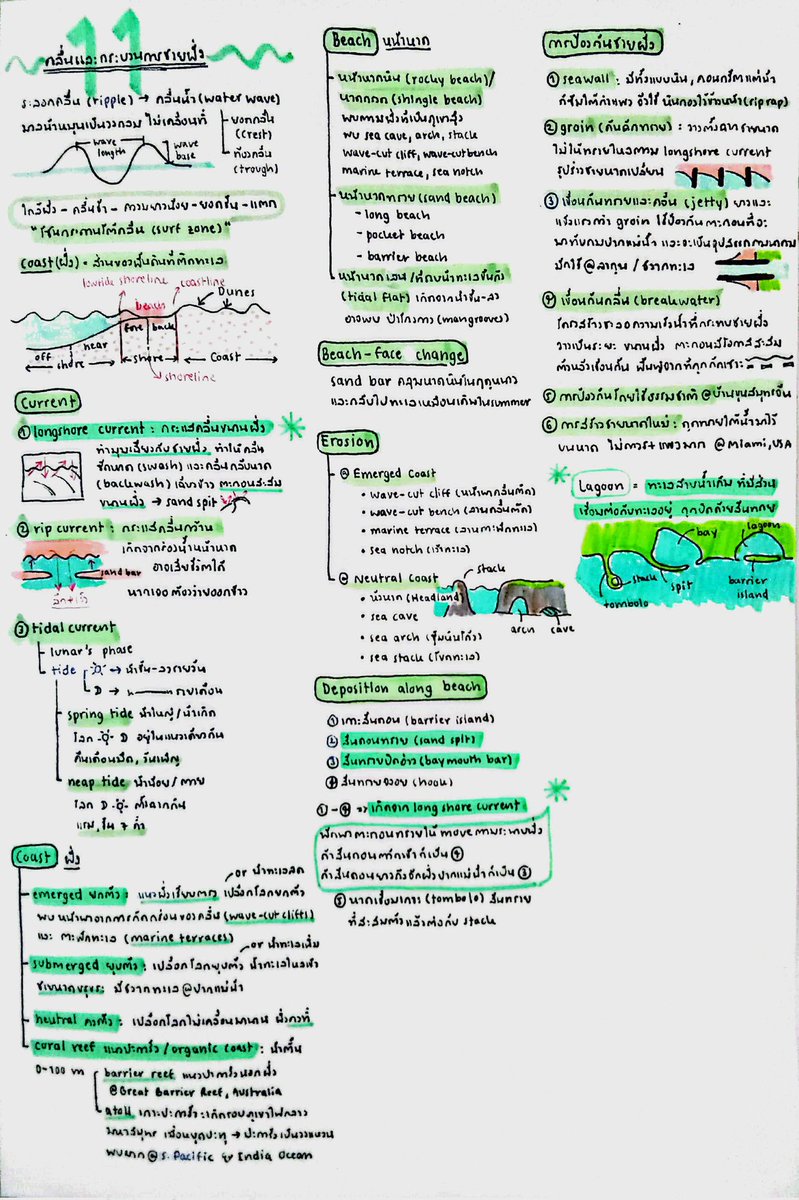 11
คลื่นและกระบวนการชายฝั่ง
ระลอกคลื่น (ripple) → คลื่นน้ำ (water wave)
มวลน้ำหมุนเป็นวงกลม ไม่เคลื่อนที่
ยอดคลื่น
(crest)
ท้องคลื่น
(trough)
wave
length
wave
base
ใกล้ฝั่ง - คลื่นช้า - ความยาวน้อย - ยอดชัน - แตก
"โซนกระดานโต้คลื่น (surf zone)"
coast (ฝั่ง) = ส่วนของผืนดินที่ติดทะเล
lowtide shoreline
coastline
beach
Dunes
fore
back
near
off
shore
shore
Coast
shoreline
Current
① longshore current : กระแสคลื่นขนานฝั่ง
ทำมุมเฉียงกับชายฝั่ง ทำให้คลื่น
ซัดหาด (swash) และคลื่นกลับหาด
(backwash) เฉียงขึ้น ตะกอนสะสม
ขนานฝั่ง → sand spit
② rip current : กระแสคลื่นกว้าน
เกิดจากร่องน้ำบนหาด
อาจเสียชีวิตได้
sand bar
หากเจอต้องว่ายออกข้าง
③ tidal current
lunar's phase
tide → น้ำขึ้น-ลงรายวัน
D → รายเดือน
spring tide น้ำใหญ่/น้ำเกิด
โลก D อยู่ในแนวเดียวกัน
คืนเดือนมืด, วันเพ็ญ
neap tide น้ำน้อย/ตาย
โลก D ตั้งฉากกัน
แรม, ขึ้น 7 ค่ำ
Coast ฝั่ง
or น้ำทะเลลด
emerged ยกตัว : แนวฝั่งเรียบตรง เปลือกโลกยกตัว
พบ หน้าผาจากการกัดกร่อนของคลื่น (wave-cut cliffs)
และ ตะพักทะเล (marine terraces)
or น้ำทะเลเพิ่ม
submerged ยุบตัว : เปลือกโลกยุบตัว น้ำทะเลไหลเข้า
ชายหาดขรุขระ มีชวากทะเล @ปากแม่น้ำ
neutral คงตัว : เปลือกโลกไม่เคลื่อนมานาน ฝั่งคงที่
coral reef แนวปะการัง/organic coast : น้ำตื้น
0-100 m
barrier reef แนวปะการังนอกฝั่ง
@Great Barrier Reef, Australia
atoll เกาะปะการัง : เกิดรอบภูเขาไฟกลาง
มหาสมุทร เมื่อยุบปะทุ → ปะการังเป็นวงแหวน
พบมาก @s. Pacific & India Ocean
Beach หน้าหาด
หน้าหาดหิน (rocky beach)/
หาดกรวด (shingle beach)
พบตามฝั่งที่เป็นภูเขาสูง
พบ sea cave, arch, stack
wave-cut cliff, wave-cut bench
marine terrace, sea notch
หน้าหาดทราย (sand beach)
- long beach
- pocket beach
- barrier beach
หน้าหาดเลน/ที่ลุ่มน้ำทะเลขึ้นถึง
(tidal flat) เกิดจากน้ำขึ้น-ลง
อาจพบ ป่าโกงกาง (mangroves)
Beach-face change
sand bar คลุมหาดหินในฤดูหนาว
และกลับไปทะเลเหมือนเดิมในsummer
Erosion
@ Emerged Coast
• wave-cut cliff (หน้าผาคลื่นตัด)
• wave-cut bench (ลานคลื่นตัด)
• marine terrace (ลานตะพักทะเล)
• sea notch (เว้าทะเล)
@ Neutral Coast
• หัวหาด (Headland)
• sea cave
• sea arch (ซุ้มหินโค้ง)
• sea stack (โขดทะเล)
stack
arch
cave
Deposition along beach
① เกาะสันดอน (barrier island)
② สันดอนทราย (sand spit)
③ สันทรายปิดอ่าว (baymouth bar)
④ สันทรายงอย (hook)
①-④ ⇒ เกิดจาก long shore current
พัดพาตะกอนทรายให้ move ตามระนาบฝั่ง
ถ้าสันดอนหักเข้าก็เป็น ④
ถ้าสันดอนยาวถึงอีกฝั่งปากแม่น้ำก็เป็น ③
⑤ หาดเชื่อมเกาะ (tombolo) สันทราย
ที่สะสมตัวแล้วต่อกับ stack
การป้องกันชายฝั่ง
① seawall : มีทั้งแบบหิน, คอนกรีตแต่น้ำ
ก็ซึมใต้กำแพง จึงใช้ หินกองไว้บนน้ำ (riprap)
② groin (คันดักทราย) : วางตั้งฉากชายหาด
ไม่ให้ทรายไหลตาม longshore current
รูปร่างชายหาดเปลี่ยน
③ เขื่อนกันทรายและคลื่น (jetty) ยาวและ
แข็งแรงกว่า groin ใช้ป้องกันตะกอนที่จะ
มาทับถมปากแม่น้ำ และจะเป็นอุปสรรคคมนาคม
มักใช้ @ลากูน / ชวากทะเล
④ เขื่อนกันคลื่น (breakwater)
โครงสร้างชะลอความเร็วน้ำที่กระทบชายฝั่ง
วางเป็นระยะ ขนานฝั่ง ตะกอนมีโอกาสสะสม
ด้านหลังเขื่อน ฟื้นฟูหาดที่ถูกกัดเซาะ
⑤ การป้องกันโดยใช้ธรรมชาติ @บ้านขุนสมุทรจีน
⑥ การสร้างชายหาดใหม่ : ดูดทรายใต้น้ำมาไว้
บนหาด ไม่ถาวร+แพงมาก @Miami, USA
Lagoon = ทะเลสาบน้ำเค็ม ที่มีส่วน
เชื่อมต่อกับทะเลอยู่ ถูกปิดด้วยสันทราย
bay
lagoon
stack
spit
barrier
island
tombolo